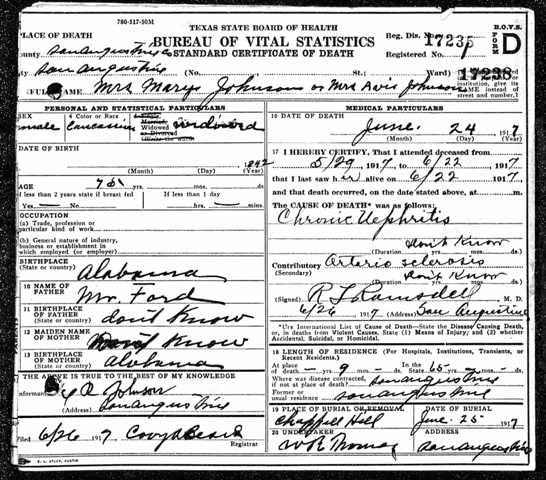 780-517-50M
TEXAS STATE BOARD OF HEALTH
BUREAU OF VITAL STATISTICS
STANDARD CERTIFICATE OF DEATH
Reg. Dis. 17235
Registered No. 1
B.O.V.S.
FORM D
PLACE OF DEATH
County San Augustine
San Augustine (No. St.; Ward)
17238
institution, give its NAME instead of street and number.)
FULL NAME Mrs Marys Johnson or Mrs Avis Johnson
PERSONAL AND STATISTICAL PARTICULARS
SEX
female
4 Color or Race
Caucasian
Widowed
or Divorced
widowed
DATE OF BIRTH
1842
(Month) (Day) (Year)
AGE 75 yrs. mos. ds.
If less than 2 years state if breast fed
If less than 1 day
Yes No hrs. mins.
OCCUPATION
(a) Trade, profession or
particular kind of work
(b) General nature of industry,
business or establishment in
which employed (or employer)
BIRTHPLACE
(State or country) Alabama
10 NAME OF
FATHER Mr. Ford
11 BIRTHPLACE
OF FATHER
(State or country) dont Know
12 MAIDEN NAME
OF MOTHER Know
13 BIRTHPLACE
OF MOTHER
(State or country) Alabama
THE ABOVE IS TRUE TO THE BEST OF MY KNOWLEDGE
Informant Johnson
(Address) San Augustine
Filed 6/26 1917
E. L. STECK, AUSTIN
MEDICAL PARTICULARS
16 DATE OF DEATH
June 24 1917
(Month) (Day) (Year)
17 I HEREBY CERTIFY, That I attended deceased from
5/29, 1917, to 6/22 1917
that I last saw her alive on 6/22 1917
and that death occurred, on the date stated above, at m.
The CAUSE OF DEATH* was as follows:
Chronic Nephritis
Dont Know
(Duration yrs. mos. ds.
Contributory Arterio sclerosis
(Secondary) Dont Know
(Duration yrs. mos. ds.
(Signed) R L Ramsdell M. D.
6/26 1917 (Address) San Augustine
*Use International List of Cause of Death—State the Disease Causing Death,
or, in deaths from Violent Causes, State (1) Means of Injury; and (2) whether
Accidental, Suicidal, or Homicidal.
18 LENGTH OF RESIDENCE (For Hospitals, Institutions, Transients, or
Recent Residents.)
At place of death yrs. 9 mos. ds. In the State 65 yrs. mos. ds.
Where was disease contracted,
if not at place of death? San Augustine
Former or
usual residence San Augustine
19 PLACE OF BURIAL OR REMOVAL
Chappell Hill
DATE OF BURIAL
June 25 1917
20 UNDERTAKER
ADDRESS
San Augustine